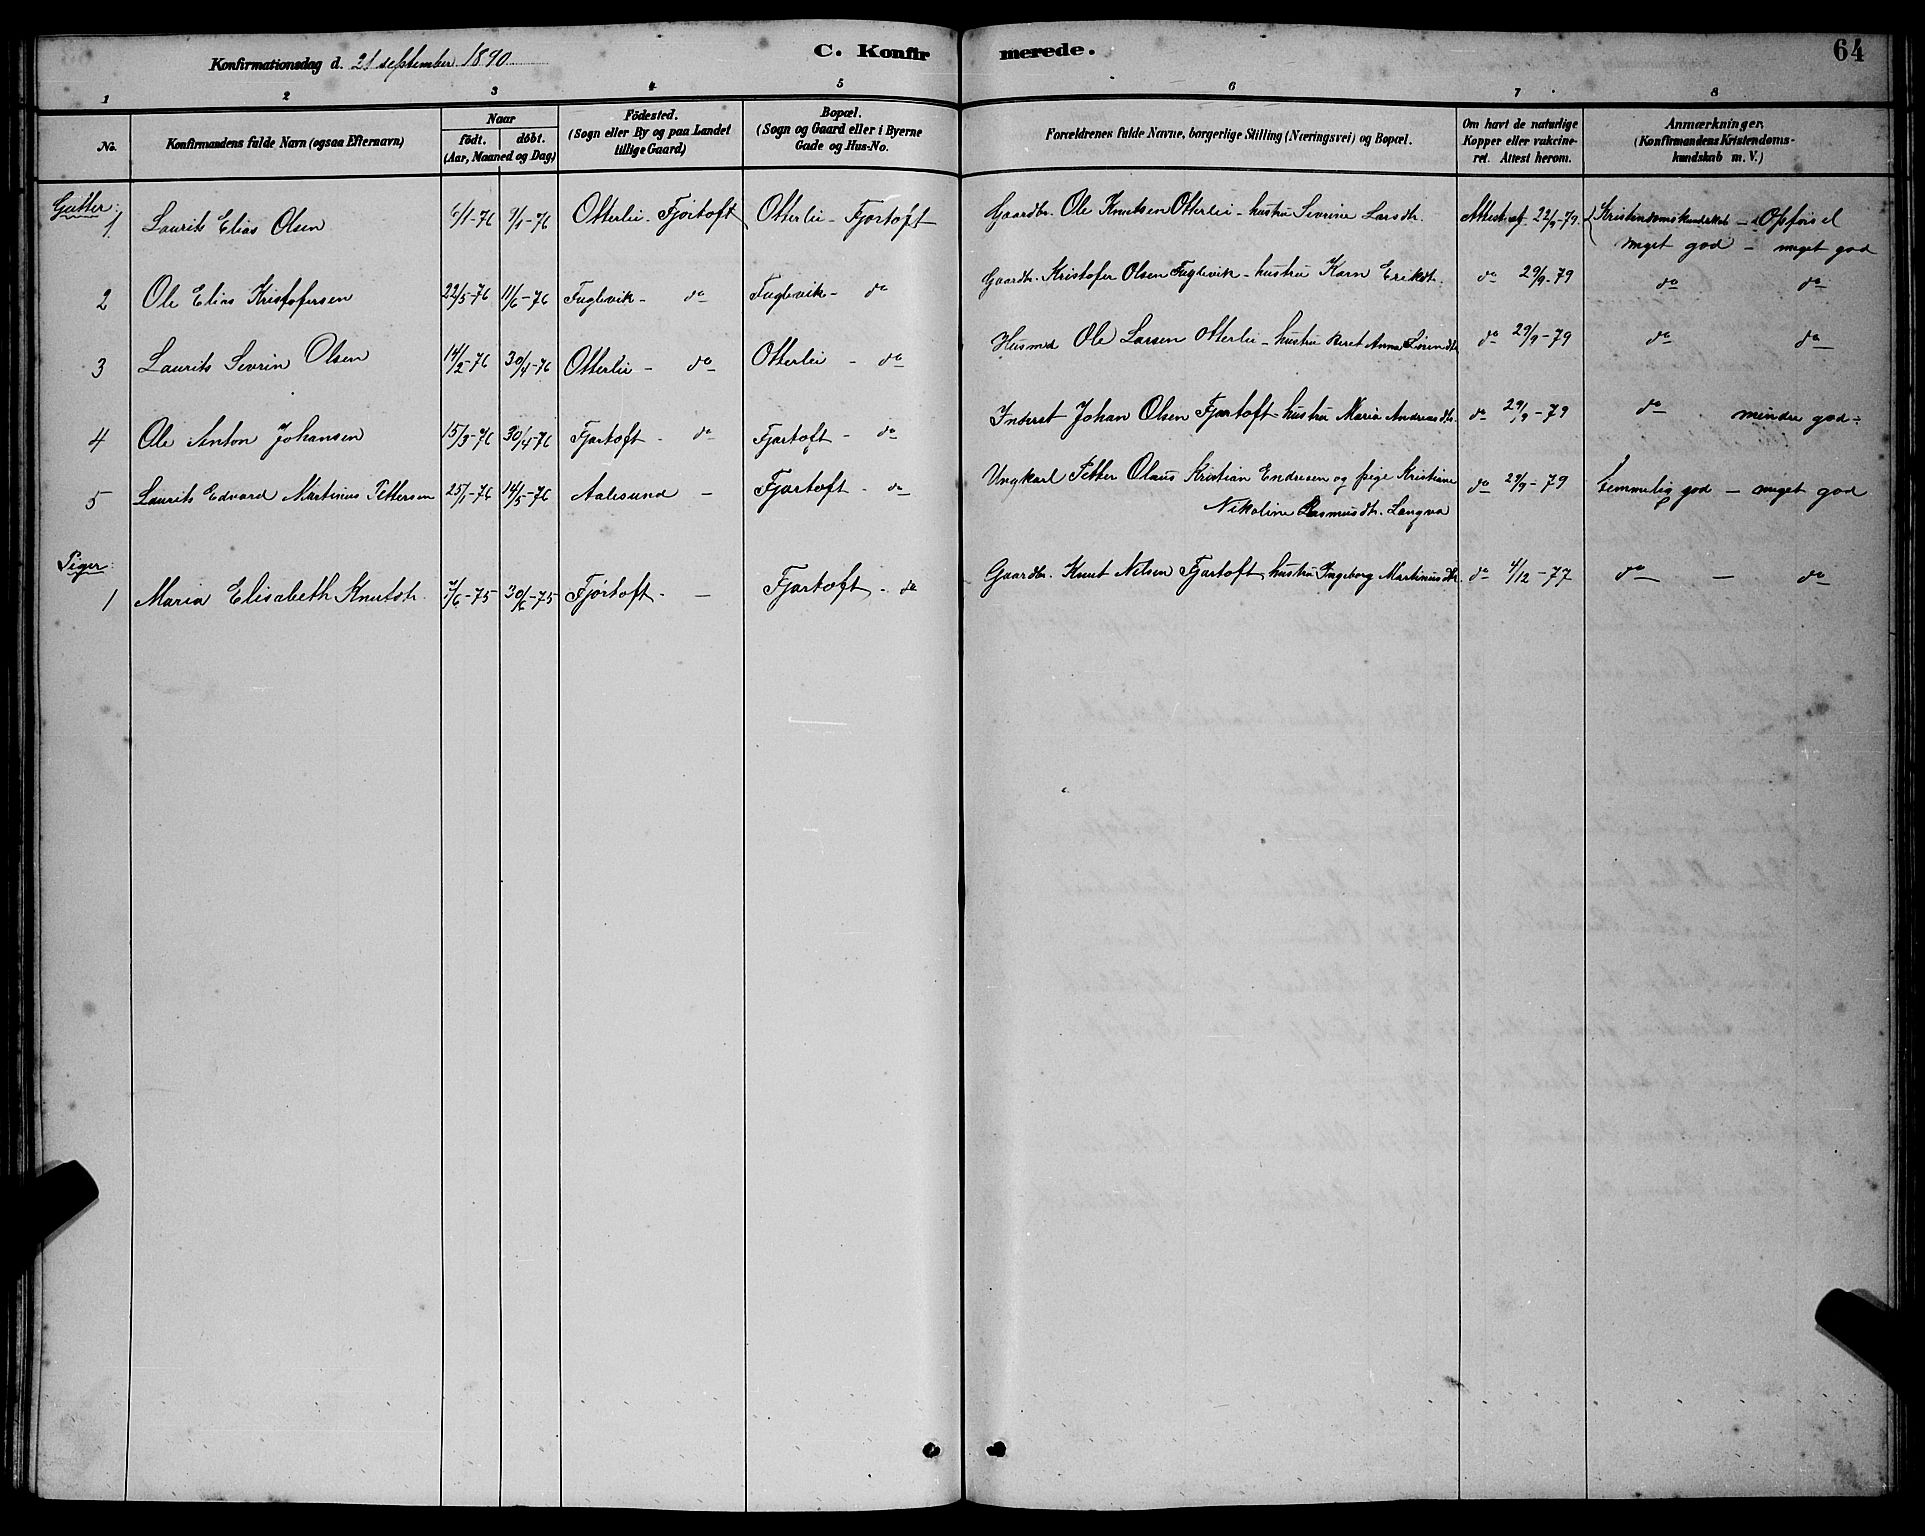 Konfirmationsdag d. 21 september 1890
C. Konfirmerede.
64
1 2 3 4 5 6 7 8
No.
Konfirmandens fulde Navn (ogsaa Efternavn)
Naar
födt. döbt.
(Aar, Maaned og Dag)
Födested.
(Sogn eller By og paa Landet
tillige Gaard)
Bopæl.
(Sogn og Gaard eller i Byerne
Gade og Hus-No.
Forældrenes fulde Navne, borgerlige Stilling (Næringsvei) og Bopæl.
Om havt de naturlige
Kopper eller vakcine-
ret. Attest herom.
Anmærkninger.
(Konfirmandens Kristendoms-
kundskab m. V.)
Gutter:
1 Laurits Elias Olsen 6/1-76 9/1-76 Otterlei - Fjörtoft Otterlei - Fjortoft Gaardbr. Ole Knutsen Otterlei - hustru Sevrine Larsdtr. Attest af 22/9-79. Kristendomskundskab - Opförsel
meget god - meget god
2 Ole Elias Kristofersen 22/5-76 11/6-76 Fuglevik - do Fuglevik - do Gaardbr. Kristofer Olsen Fuglevik - hustru Karn Eriksdtr. do 29/9-79 do do
3 Laurits Sevrin Olsen 14/2-76 30/4-76 Otterlei - do Otterlei - do Husmd Ole Larsen Otterlei - hustru Beret Anna dtr do 29/9-79 do do
4 Ole Anton Johansen 15/3-76 30/4-76 Fjortoft - do Fjortoft - do Inderst Johan Olsen Fjortoft - hustru Maria Andreasdtr. do 29/9-79 do mindre god -
5 Laurits Edvard Martinus Pettersen 25/1-76 14/5-76 Aalesund - Fjortoft - do Ungkarl Petter Olaus Kristian Endresen og pige Kristiane
Nikoline Rasmusdtr. Longva do 29/9-79 temmelig god - meget god
Piger:
1 Maria Elisabeth Knutdtr. 7/6-75 30/6-75 Fjørtoft - - Fjortoft - do Gaardbr. Knut Nilsen Fjortoft hustru Ingeborg Martinusdtr. do 4/12-77 do - do